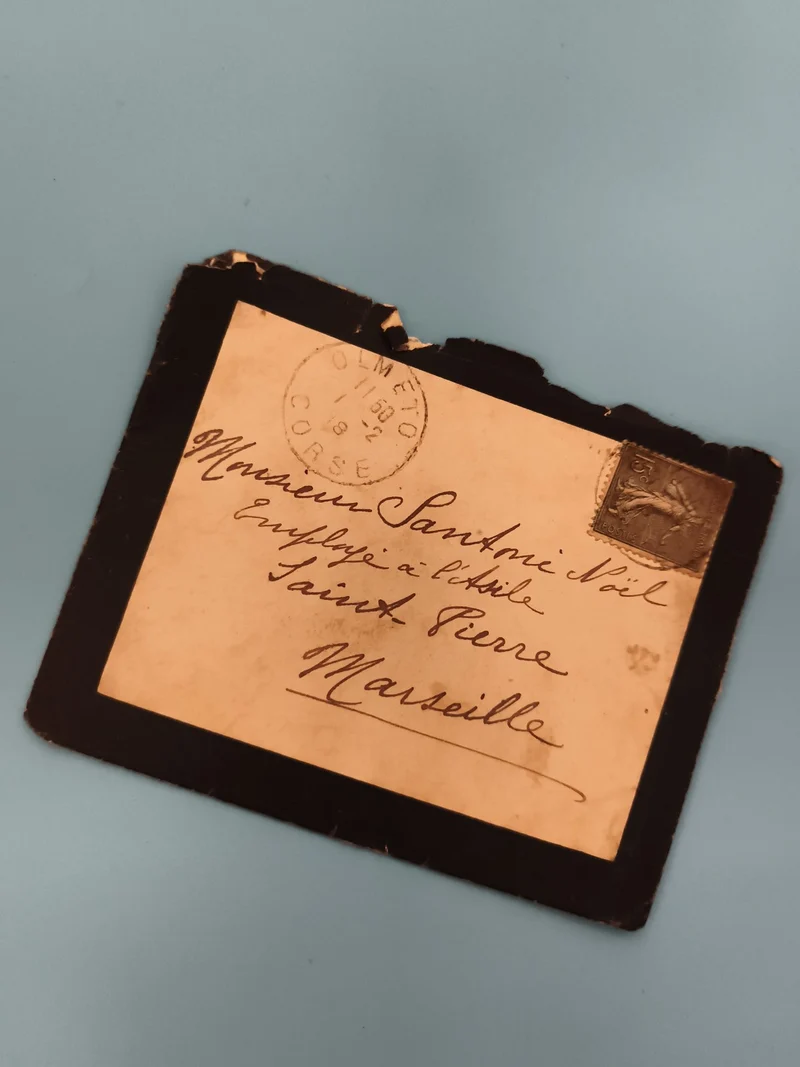 OLMETO
11 50
1 -2
18
CORSE
15c
Monsieur Santoni Noël
Employé à l'Asile
Saint-Pierre
Marseille